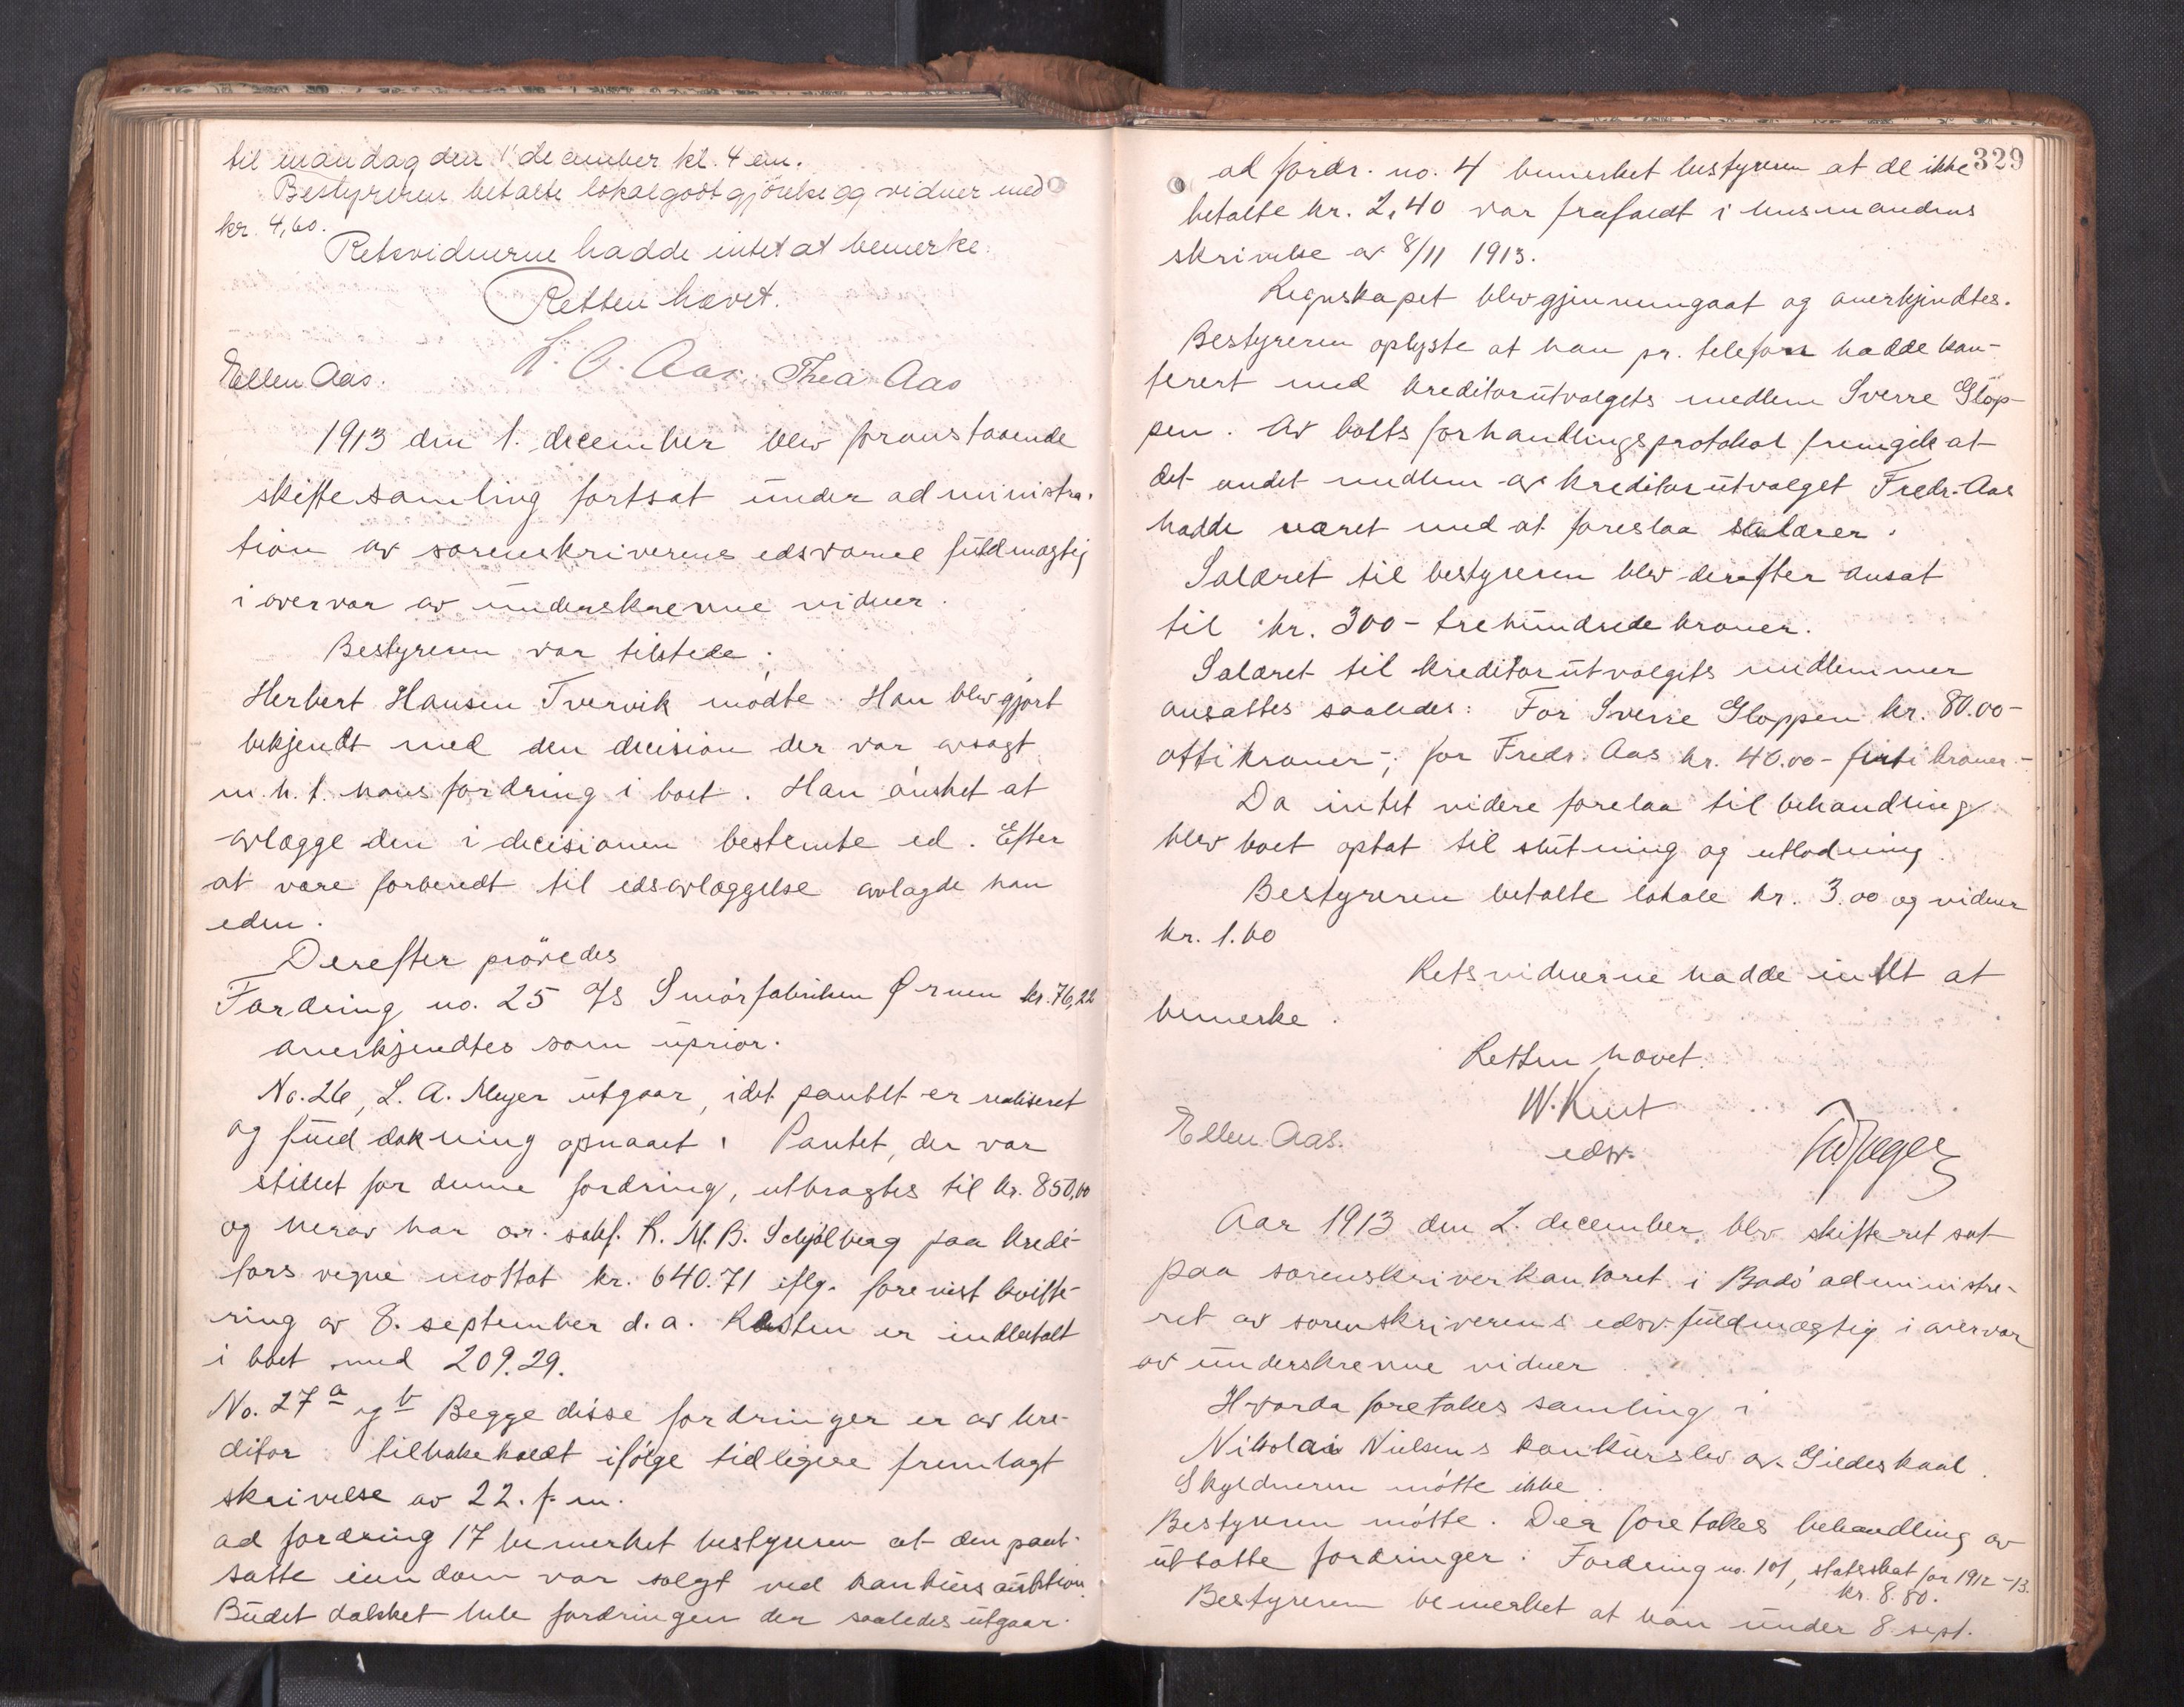 til mandag den 1' december kl. 4 em.
Bestyreren betalte lokalgodtgjörelse og vidner med
kr. 4,60.
Retsvidnerne hadde intet at bemerke.
Retten hævet.
Ellen Aas. L. O. Aas. Thea Aas
1913 den 1. december blev foranstaaende
skiftesamling fortsat under administra-
tion av sorenskriverens edsvorne fuldmægtig
i overvær av underskrevne vidner.
Bestyreren var tilstede.
Herbert Hansen Tvervik mødte. Han blev gjort
bekjendt med den decision der var avsagt
m. h. t. hans fordring i boet. Han ønsket at
avlægge den i decisionen bestemte ed. Efter
at være forberedt til edsavlæggelse avlagde han
eden.
Derefter prövedes
Fordring no. 25 A/S Smörfabriken Ørnen kr. 76,22
anerkjendtes som uprior.
No. 26, L. A. Meyer utgaar, idet pantet er realiseret
og fuld dækning opnaaet. Pantet, der var
stillet for denne fordring, utbragtes til kr. 850,00
og herav har or. sakf. R. M. B. Schjölberg paa kredi-
tors vegne mottat kr. 640.71 iflg. forevist kvitte-
ring av 8. september d. a. Resten er indbetalt
i boet med 209.29.
No. 27 a og b Begge disse fordringer er av kre-
ditor tilbakekaldt ifölge tidligere fremlagt
skrivelse av 22. f. m.
ad fordring 17 bemerket bestyreren at den pant-
satte eiendom var solgt ved konkursauktion.
Budet dækket hele fordringen der saaledes utgaar.
329
ad fordr. no. 4 bemerket bestyreren at de ikke
betalte kr. 2,40 var frafaldt i lensmandens
skrivelse av 8/11 1913.
Regnskapet blev gjennemgaat og anerkjendtes.
Bestyreren oplyste at han pr. telefon hadde kon-
ferert med kreditorutvalgets medlem Sverre Glop-
pen. Av boets forhandlingsprotokol fremgik at
det andet medlem av kreditorutvalget Fredr. Aas
hadde været med at foreslaa salærer.
Salæret til bestyreren blev derefter ansat
til kr. 300 - trehundrede kroner.
Salæret til kreditorutvalgets medlemmer
ansattes saaledes: For Sverre Gloppen kr. 80.00 -
otti kroner -; for Fredr. Aas kr. 40.00 - firti kroner. -
Da intet videre forelaa til behandling
blev boet optat til slutning og utlodning.
Bestyreren betalte lokale kr. 3.00 og vidner
kr. 1.60
Retsvidnerne hadde intet at
bemerke.
Retten hævet.
W. Knut
Ellen Aas. edsv.
Aar 1913 den 2. december blev skifteret sat
paa sorenskriverkontoret i Bodö administre-
ret av sorenskriverens edsv. fuldmægtig i overvær
av underskrevne vidner.
Hvorda foretokes samling i
Nikolai Nielsens konkursbo av Gildeskaal.
Skyldneren mötte ikke.
Bestyreren mötte. Der foretokes behandling av
utsatte fordringer: Fordring no. 101, statsskat for 1912-13.
kr. 8.80.
Bestyreren bemerket at han under 8 sept.